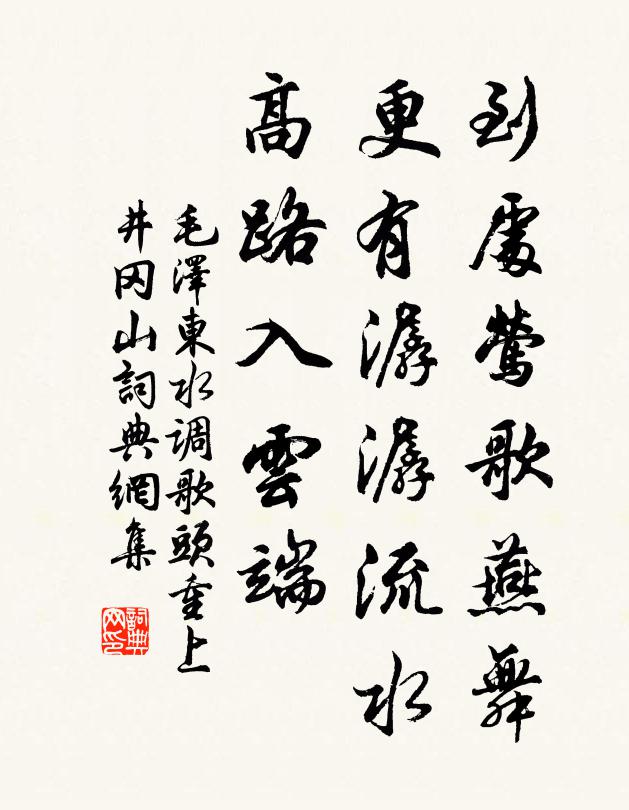 到處鶯歌燕舞
更有潺潺流水
高路入雲端
毛澤東水调歌頭重上
井冈山詞典網集
詞典网印